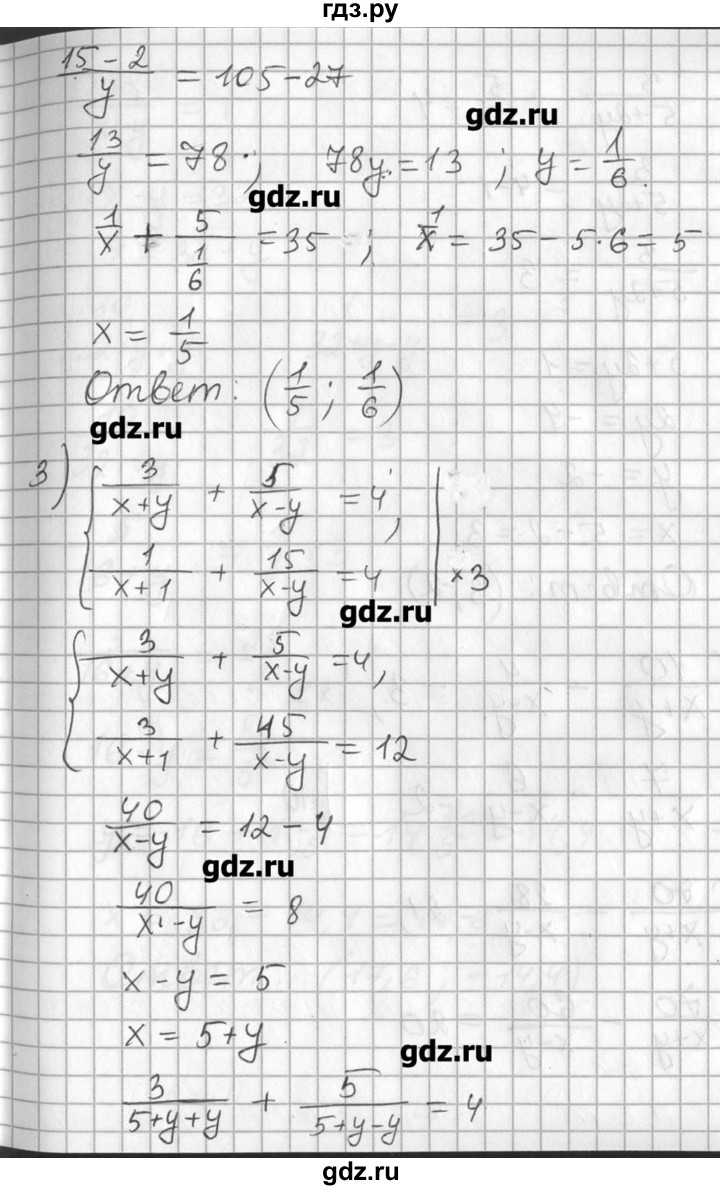 гдз.ру
(15-2)/y = 105-27
gdz.ru
13/y = 78; 78y = 13; y = 1/6.
gdz.ru
1/x + 5/(1/6) = 35; 1/x = 35 - 5·6 = 5
x = 1/5
Ответ: (1/5; 1/6)
gdz.ru
3) { 3/(x+y) + 5/(x-y) = 4, |
1/(x+1) + 15/(x-y) = 4 | ×3
gdz.ru
{ 3/(x+y) + 5/(x-y) = 4,
3/(x+1) + 45/(x-y) = 12
40/(x-y) = 12 - 4
gdz.ru
40/(x-y) = 8
x - y = 5
x = 5+y
gdz.ru
3/(5+y+y) + 5/(5+y-y) = 4
gdz.ru